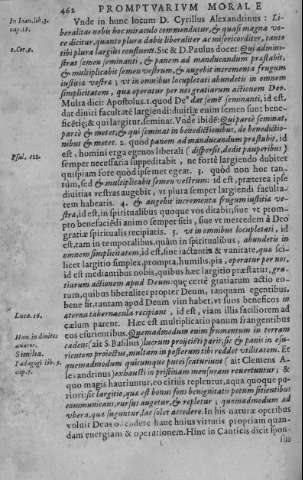 462 PROMPTVARIVM MORALE
Vnde in hunc locum D. Cyrillus Alexandrinus: Li-
beralitas nobis hoc miraculo commendatur, & quasi magna vo-
ce dicitur, quanto plura dabis liberaliter ac misericorditer, tanto
tibi plura largius confluent. Sic & D. Paulus docet. Qui admini-
strat semen seminanti, & panem ad manducandum præstabit,
& multiplicabit semen vestrum, & augebit incrementa frugum
iustitiæ vestræ; vt in omnibus locupletati abundetis in omnem
simplicitatem, quæ operatur per nos gratiarum actionem Deo.
Multa dicit Apostolus. 1. quod De⁹ dat semē seminanti, id est,
dat diuiti facultatē largiendi: diuitiæ enim semen sunt bene-
ficētię; & qui largitur, seminat. Vnde ibidē: Qui parcè seminat,
parcè & metet; & qui seminat in benedictionibus, de benedictio-
nibus & metet. 2. quod panem ad manducandum præstabit, id
est, homini erga egenos liberali (dispersit, dedit pauperibus)
semper necessaria suppeditabit, ne fortè largiendo dubitet
quispiam fore quòd ipse met egeat. 3. quòd non hoc tan-
tùm, sed & multiplicabit semen vestrum: id est, præterea ipse
diuitias vestras augebit, vt plura semper largiendi faculta-
tem habeatis. 4. & augebit incrementa frugum iustitiæ ve-
stræ, id est, in spiritualibus quoque vos ditabit; siue vt prom-
pto benefaciēdi animo semper sitis, siue vt mercedem à Deo
gratiæ spiritualis recipiatis. 5. vt in omnibus locupletati, id
est, tam in temporalibus, quàm in spiritualibus, abundetis in
omnem simplicitatem, id est, sine iactantia & vanitate, qua sci-
licet largitio simplex, prompta, humilis, pia, operatur per nos,
id est mediantibus nobis, quibus hæc largitio præstatur, gra-
tiarum actionem apud Deum; quę certè gratiarum actio eo-
rum, quibus liberalites propter Deum, tanquam egentibus,
bene fit, tantam apud Deum vim habet, vt suos beneficos in
æterna tabernacula recipiant, id est, viam illis facillorem ad
cælum parent. Hæc est multiplicatio panum frangentibus
eos esurientibus. Quemadmodum enim frumentum in terram
cadens (ait S. Basilius) lucrum proijcienti parit, sic & panis in esu-
rientem proiectus, multam in posterum tibi reddet vtilitatem. Et
quemadmodum quicumque putei scaturiunt (ait Clemens A-
lexandrinus) exhausti in pristinam mensuram reuertuntur; &
quo magis hauriuntur, eo citius replentur, aqua quoque pa-
riori: sic largitio, quæ est bonus fons benignitatis potum sitientibus
communicans, rursus augetur, & repletur; quemadmodum ad
vbera, quæ sugūtur, lac solet accedere. In his naturæ operibus
voluit Deus adcædere hanc huius virtutis propriam quan-
dam energiam & operationem. Hinc in Canticis dicit spon-
sus
In Ioan. lib. 3.
cap. 18.
2. Cor. 9.
Psal. 111.
Luca. 16.
Hom. in diuites
auaros.
Similia.
Pædagogi lib. 3.
cap. 7.